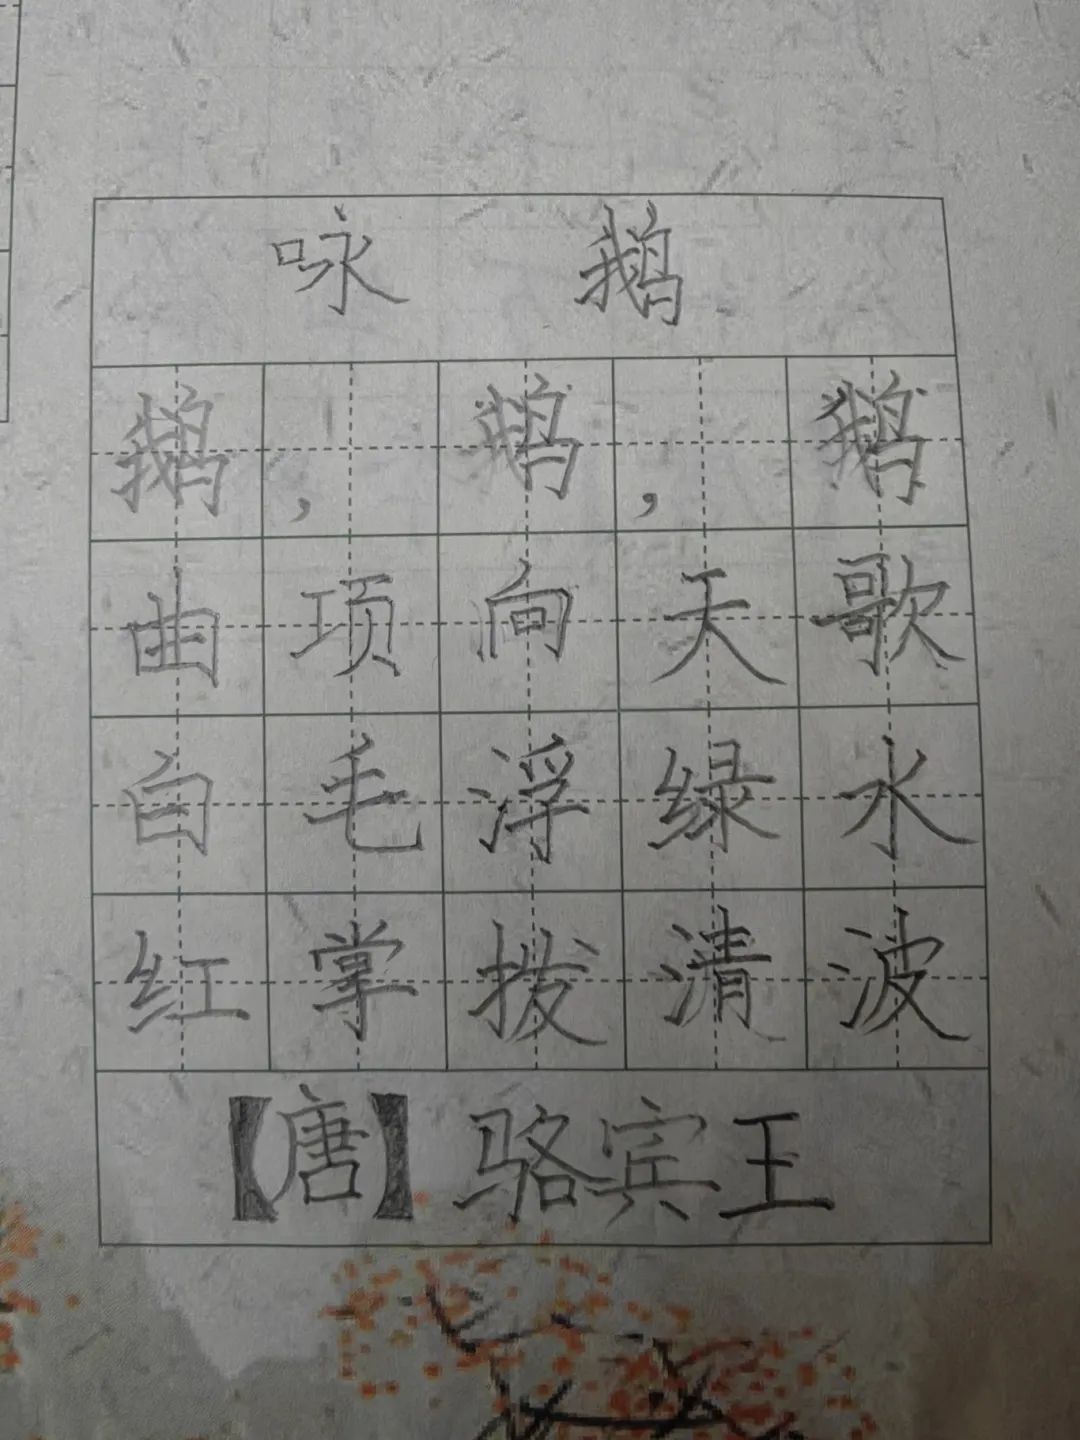 咏 鹅
鹅，鹅，鹅
曲项向天歌
白毛浮绿水
红掌拨清波
【唐】骆宾王